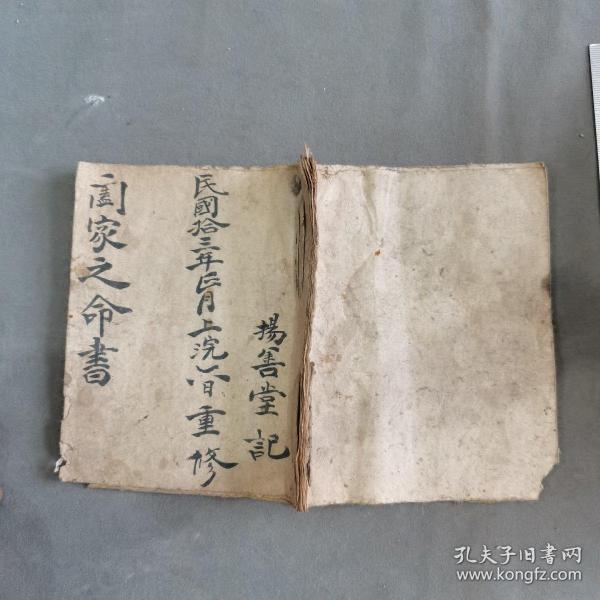 揚善堂記
民國拾三年正月上浣日重修
家之命書
孔夫子旧書网
www.kongfz.com